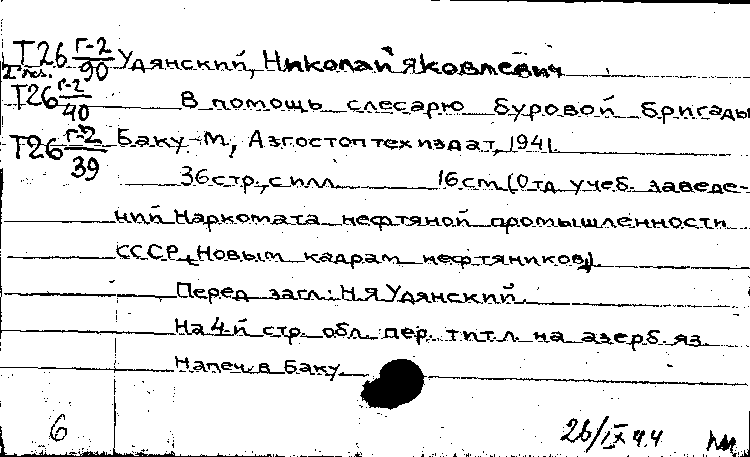 Т26 Г-2/90 Удянский, Николай Яковлевич
2 экз.
Т26 Г-2/40 В помощь слесарю буровой бригады
Т26 Г-2/39 Баку-М, Азгостоптехиздат, 1941.
36 стр., с илл. 16 см. (Отд. учеб. заведе-
ний Наркомата нефтяной промышленности
СССР, "Новым кадрам нефтяников")
Перед загл.: Н.Я Удянский.
На 4-й стр. обл. пер. титл. на азерб. яз.
Напеч. в Баку
6 26/IX 44